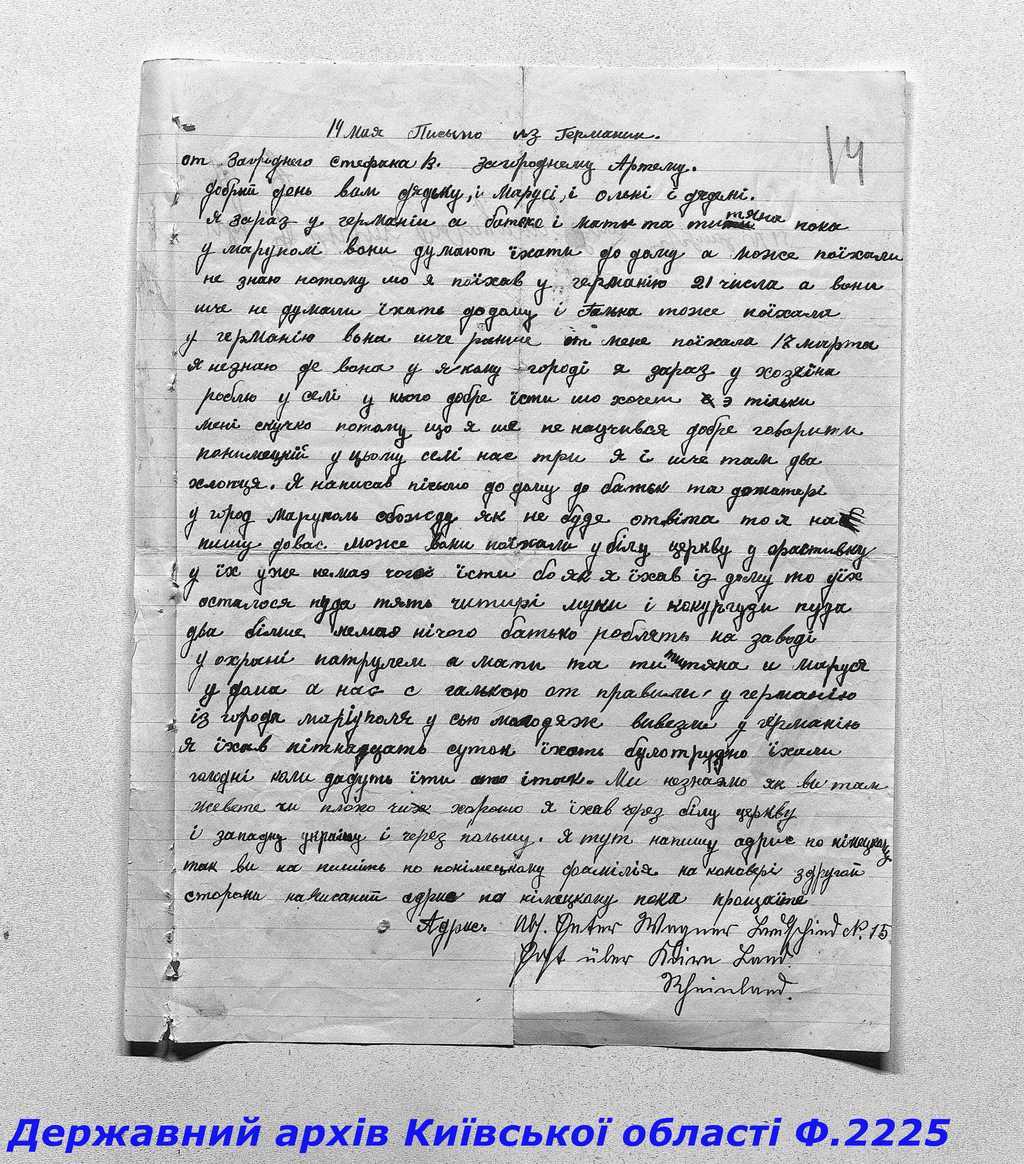 14 мая Письмо из Германии.
14
от Загороднего Стефана В. Загороднему Артему.
Добрий день вам дядьку, і Марусі, і олькі і
я зараз у германіи а батько і мати та тяна пока
у маруполі вони думают їхати до дому а може поїхали
не знаю потому що я поїхав у германію 21 числа а вони
ище не думали їхать додому і Галька тоже поїхала
у германію вона ище раньше от мене поїхала 17 марта
я незнаю де вона у якому городі я зараз у хозяїна
роблю у селі у нього добре їсти шо хочеш тільки
мені скучко потому що я ше не научився добре говорити
понимецкій у цьому селі нас три я і ище там два
хлопця. Я написав пісьмо до дому до батьк та доматері
у город Маруполь обожду як не буде отвіта то я на
пишу довас. може вони поїхали у білу церкву у фастивку
у їх уже немає чого їсти бо як я їхав із дому то уїх
осталося пуда пять читирі муки і кокургузи пуда
два більше немає нічого батько роблять на заводі
у охрані патрулем а мати та тяна и Маруся
у дома а нас с галькою от правили у германію
із города маріуполя у сю молодяж вивезли у германію
Я їхав пітнадцать суток їхать булотрудно їхали
голодні коли дадуть їти то ітак. Ми незнаємо як ви там
живете чи плохо чи хорошо я їхав через білу церкву
і западну україну і через польшу. Я тут напишу адрис по німецкому
так ви на пишіть по понімецкому фамілія на конвері здругой
сторони написаний адрис по німецкому пока прощайте
Адрис. Abs. Peter Wagner N. 15
Post über Kirn Land.
Rheinland.
Державний архів Київської області Ф.2225